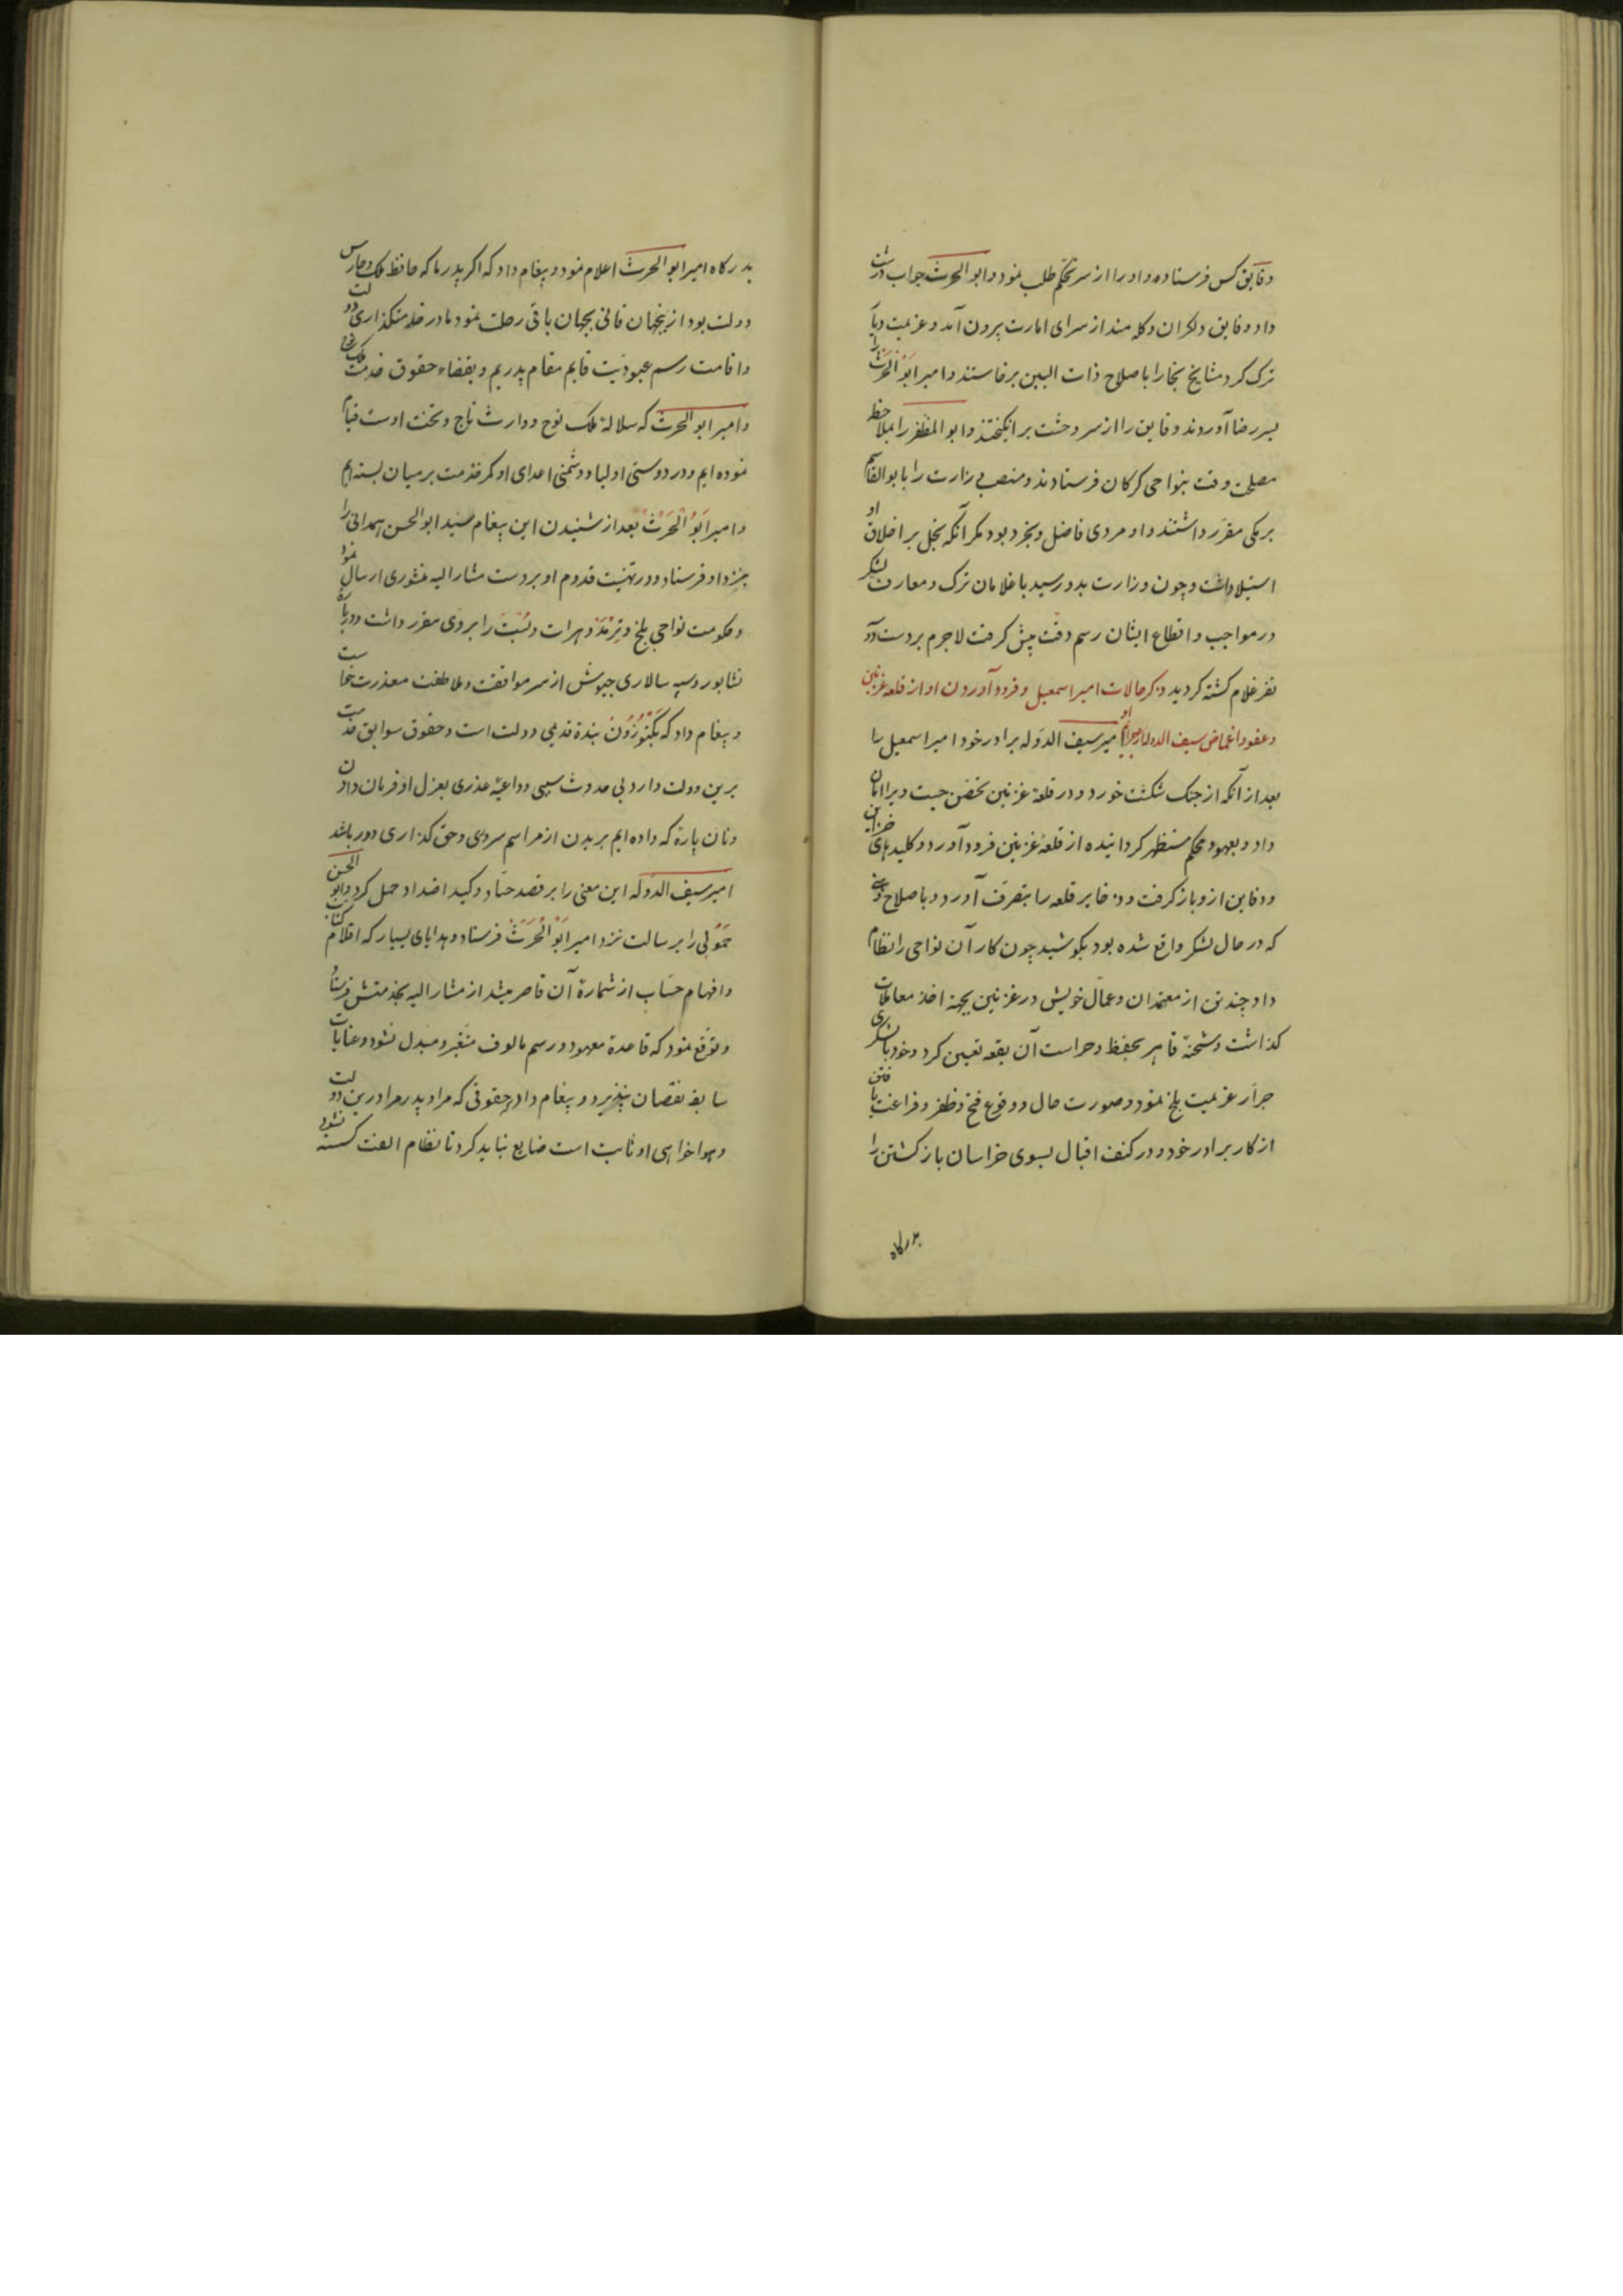 وفایق کس فرستاده و او را از سر تحکم طلب نمود و ابو الحرث جواب درشت
داد و فایق دلکران و کله مند از سرای امارت بیرون آمد و عزیمت دیار
ترک کرد مشایخ بخارا باصلاح ذات البین برخاستند و امیر ابو الحرث را
بسر رضا آوردند و فایق را از سر وحشت برانکیختند و ابو المظفر را بملاحظه
مصلحت وقت بنواحی کرکان فرستادند و منصب وزارت را بابو القاسم
برمکی مقرر داشتند و او مردی فاضل و بخرد بود مکر آنکه بخل بر اخلاق او
استیلا داشت و چون وزارت بدو رسید با غلامان ترک و معارف لشکر
در مواجب و اقطاع ایشان رسم دقت پیش کرفت لاجرم بر دست دو
نفر غلام کشته کردید ذکر حالات امیر اسمعیل و فرود آوردن او از قلعه غزنین
و عفو و اغماض سیف الدوله از جرایم او امیر سیف الدوله برادر خود امیر اسمعیل را
بعد از آنکه از جنک شکست خورد و در قلعۀ غزنین تحصن جست ویرا امان
داد و بعهود محکم مستظهر کردانیده از قلعۀ غزنین فرود آورد و کلیدهای خزاین
و دفاین ازو باز کرفت و ذخایر قلعه را بتصرف آورد و باصلاح
که در حال لشکر واقع شده بود بکوشید چون کار آن نواحی را نظام
داد چند تن از معتمدان و عمال خویش در غزنین بجهة اخذ معاملات
کذاشت و شحنۀ قاهر بحفظ و حراست آن بقعه تعیین کرد و خود با لشکری
جرار عزیمت بلخ نمود و صورت حال و وقوع فتح و ظفر و فراغت یافتن
از کار برادر خود و در کنف اقبال بسوی خراسان باز کشتن را
بدرکاه
بدرکاه امیر ابو الحرث اعلام نمود و پیغام داد که اکر پدر ما که حافظ ملک و حارس
دولت بود ازینجهان فانی بجهان باقی رحلت نمود ما در خدمتکذاری دولت
و اقامت رسم عبودیت قایم مقام پدریم و بقضاء حقوق خدمت ملک نوح
و امیر ابو الحرث که سلالۀ ملک نوح و وارث تاج و تخت اوست قیام
نموده ایم و در دوستی اولیا و دشمنی اعدای او کمر خدمت بر میان بسته ایم
و امیر ابو الحرث بعد از شنیدن این پیغام سید ابو الحسن همدانی را
بنزد او فرستاد و در تهنیت قدوم او بر دست مشار الیه منشوری ارسال نمود
و حکومت نواحی بلخ و ترمذ و هرات و بست را بر وی مقرر داشت و درباره
نشابور و سپه سالاری جیوش از سر موافقت و ملاطفت معذرت خواست
و پیغام داد که بکتوزون بندۀ قدیمی دولت است و حقوق سوابق خدمت
برین دولت دارد بی حدوث سببی و داعیۀ عذری بعزل او فرمان دادن
و نان پارۀ که داده ایم بریدن از مراسم سروری و حق کذاری دور باشد
امیر سیف الدوله این معنی را بر قصد حساد و کید اضداد حمل کرد و ابو الحسن
حمولی را برسالت نزد امیر ابو الحرث فرستاد و هدایای بسیار که اقلام کتاب
و افهام حساب از شمارۀ آن قاصر میشد از مشار الیه بخدمتش فرستاد
و توقع نمود که قاعدۀ معهود و رسم مالوف متغیر و مبدل نشود و عنایات
سابقه نقصان نپذیرد و پیغام داد حقوقی که مرا و پدر مرا درین دولت
و هواخواهی او ثابت است ضایع نباید کرد تا نظام الفت کسسته نشود